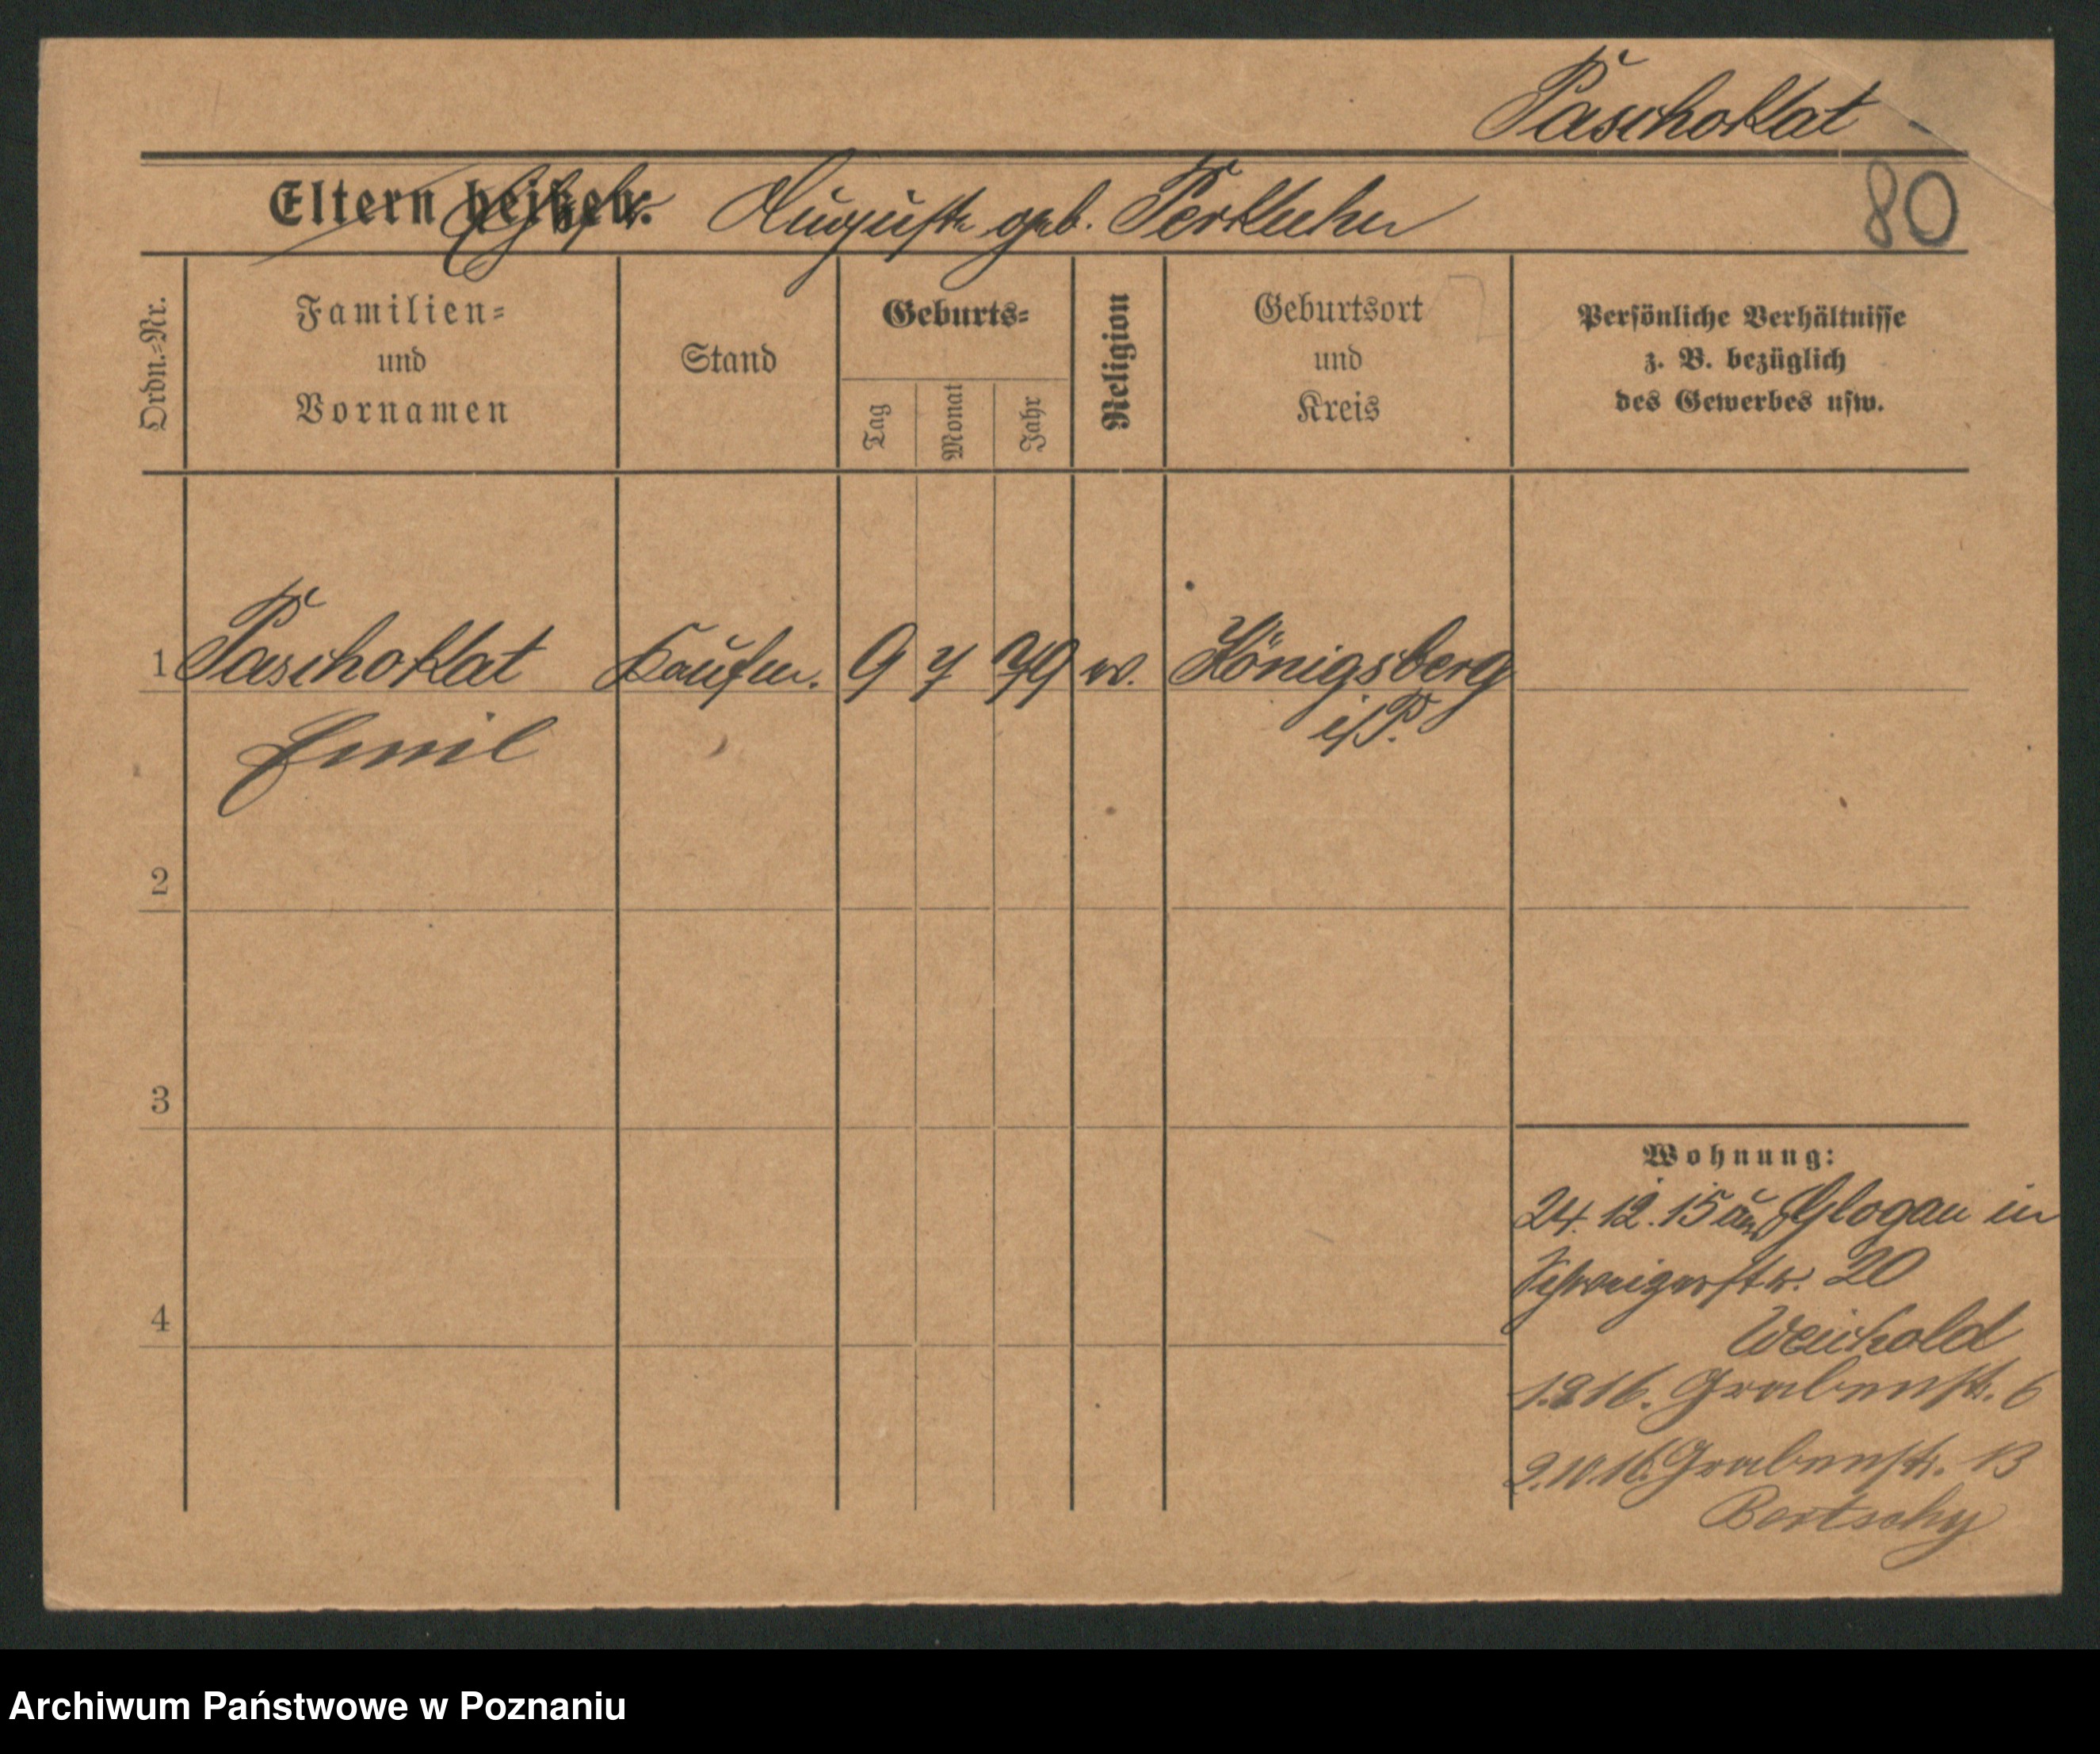 Paschokat
Eltern heißen: Ehefr. Auguste geb. Perkuhn
80
Ordn.-Nr.
Familien=
und
Vornamen
Stand
Geburts=
Tag
Monat
Jahr
Religion
Geburtsort
und
Kreis
Persönliche Verhältnisse
z. B. bezüglich
des Gewerbes usw.
1 Paschokat Kaufm. 9 7 79 ev. Königsberg
Emil i/P.
2
3
4
Wohnung:
24.12.15 Glogau in
20
Weichold
16. Grabenstr. 6
2.10.16. Grabenstr. 13
Bertschy
Archiwum Państwowe w Poznaniu